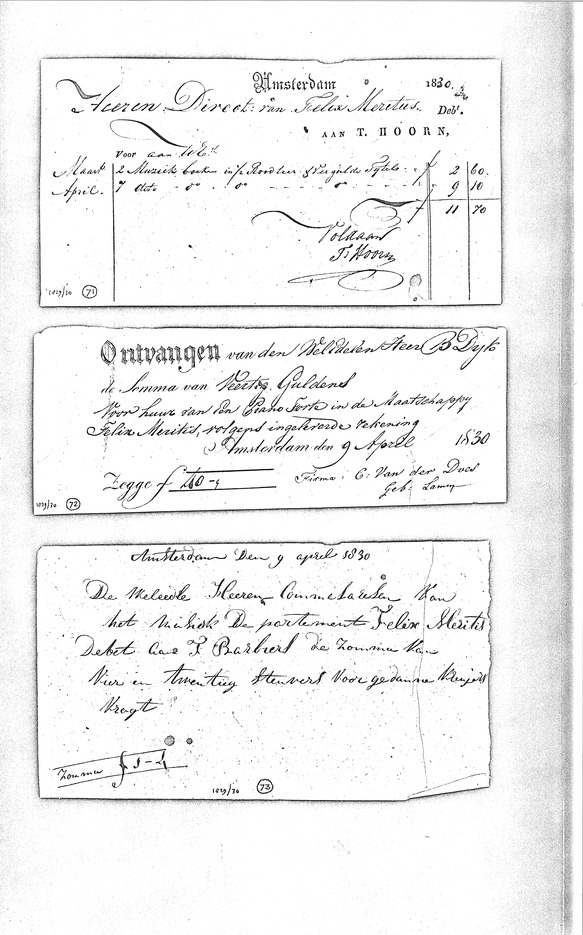 Amsterdam 1830.
Heeren Direct: van Felix Meritus. Debt.
AAN T. HOORN,
Voor aan WEd.
Maart 2 Muziek boeken in ½ Roodleer & Vergulde Tytels. f 2 60.
April. 7 dito do do do 9 10
f 11 70
Voldaan
Ts Hoorn
1829/30 71
Ontvangen van den WelEdelen Heer B Dyk
de Somma van Veertig Guldens
Voor huur van Een Piano Forte in de Maatschappy
Felix Meritis, volgens ingeleverde rekening
Amsterdam den 9 April 1830
Zegge f 40-,
Firma: C: Van der Does
Geb:
1829/30 72
Amsterdam Den 9 april 1830
De Weledle Heeren Commesarisen Van
het Musiek De partement Felix Meritis
Debet aan F Barbiers de Zomma Van
Vier en twentig Stuvers Voor gedaane Kruijers
Vragt
Zomma f 1-4
1829/30 73